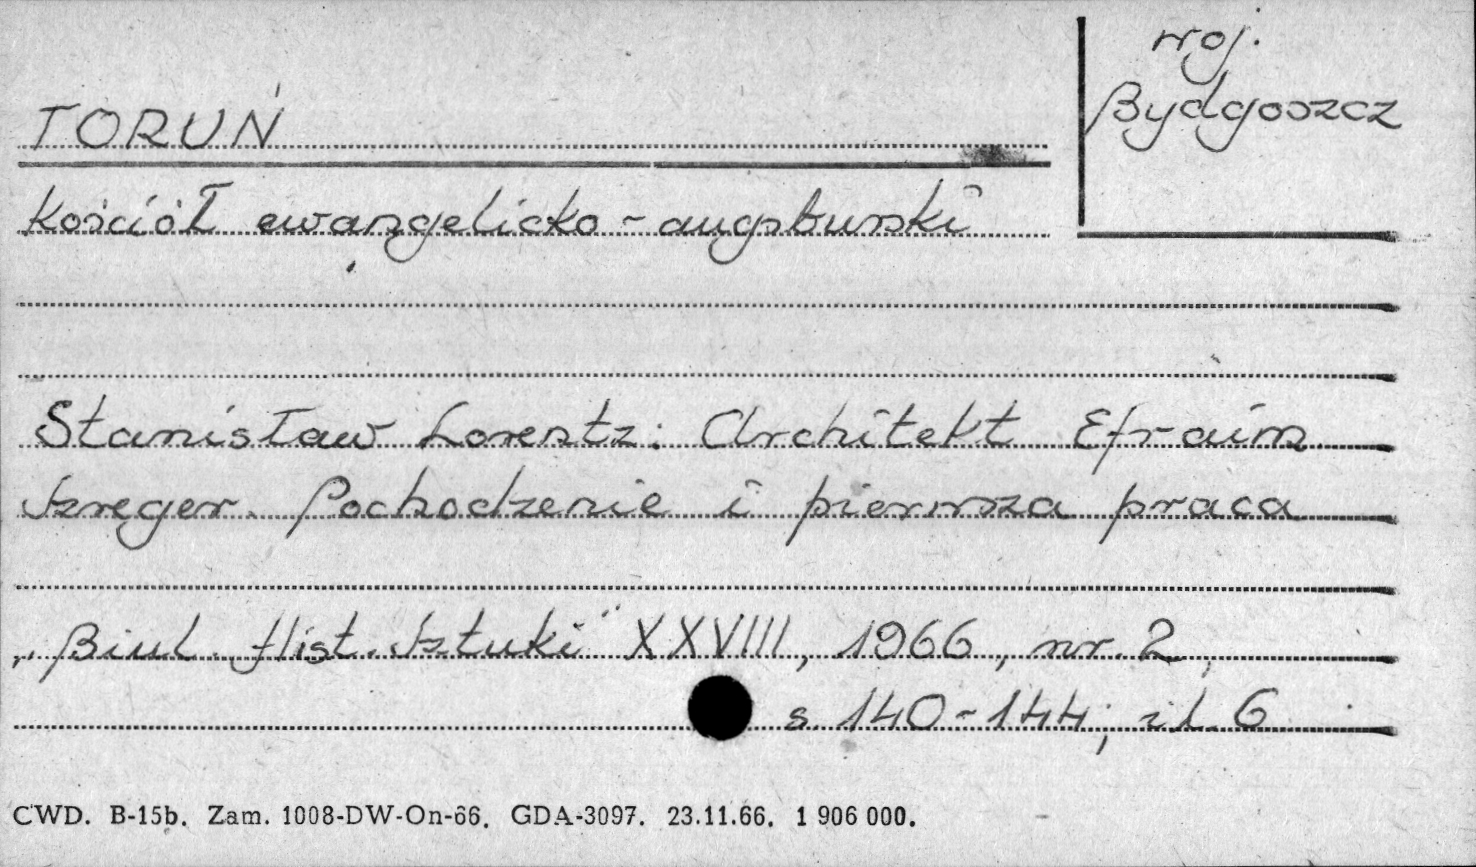 woj.
Bydgoszcz
TORUŃ
Kościół ewangelicko-augsburski
Stanisław Lorentz: Architekt Efraim
Szreger. Pochodzenie i pierwsza praca
„Biul. Hist. Sztuki" XXVIII, 1966, nr. 2,
s. 140-144; il. 6
CWD. B-15b. Zam. 1008-DW-On-66. GDA-3097. 23.11.66. 1 906 000.